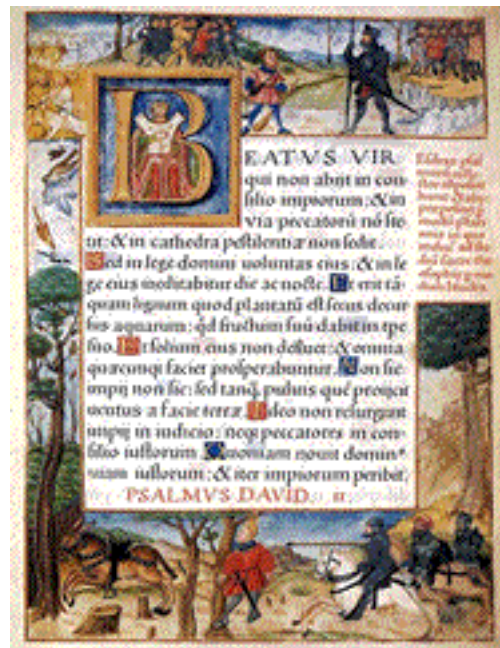 BEATVS VIR
qui non abijt in con-
silio impiorum: & in
via peccatorū nō ste
tit: & in cathedra pestilentiæ non sedit.
Sed in lege domini voluntas eius: & in le
ge eius meditabitur die ac nocte. Et erit tā
quam lignum quod plantatū est secus decur
sus aquarum: qd fructum suū dabit in tpe
suo. Et folium eius non defluet: & omnia
quæcunq faciet prosperabuntur. Non sic
impij non sic: sed tanq puluis quē proijcit
uentus a facie terræ. Ideo non resurgunt
impij in iudicio: neq peccatores in con-
silio iustorum. Quoniam nouit domin9
uiam iustorum: & iter impiorum peribit.
PSALMVS DAVID. ii